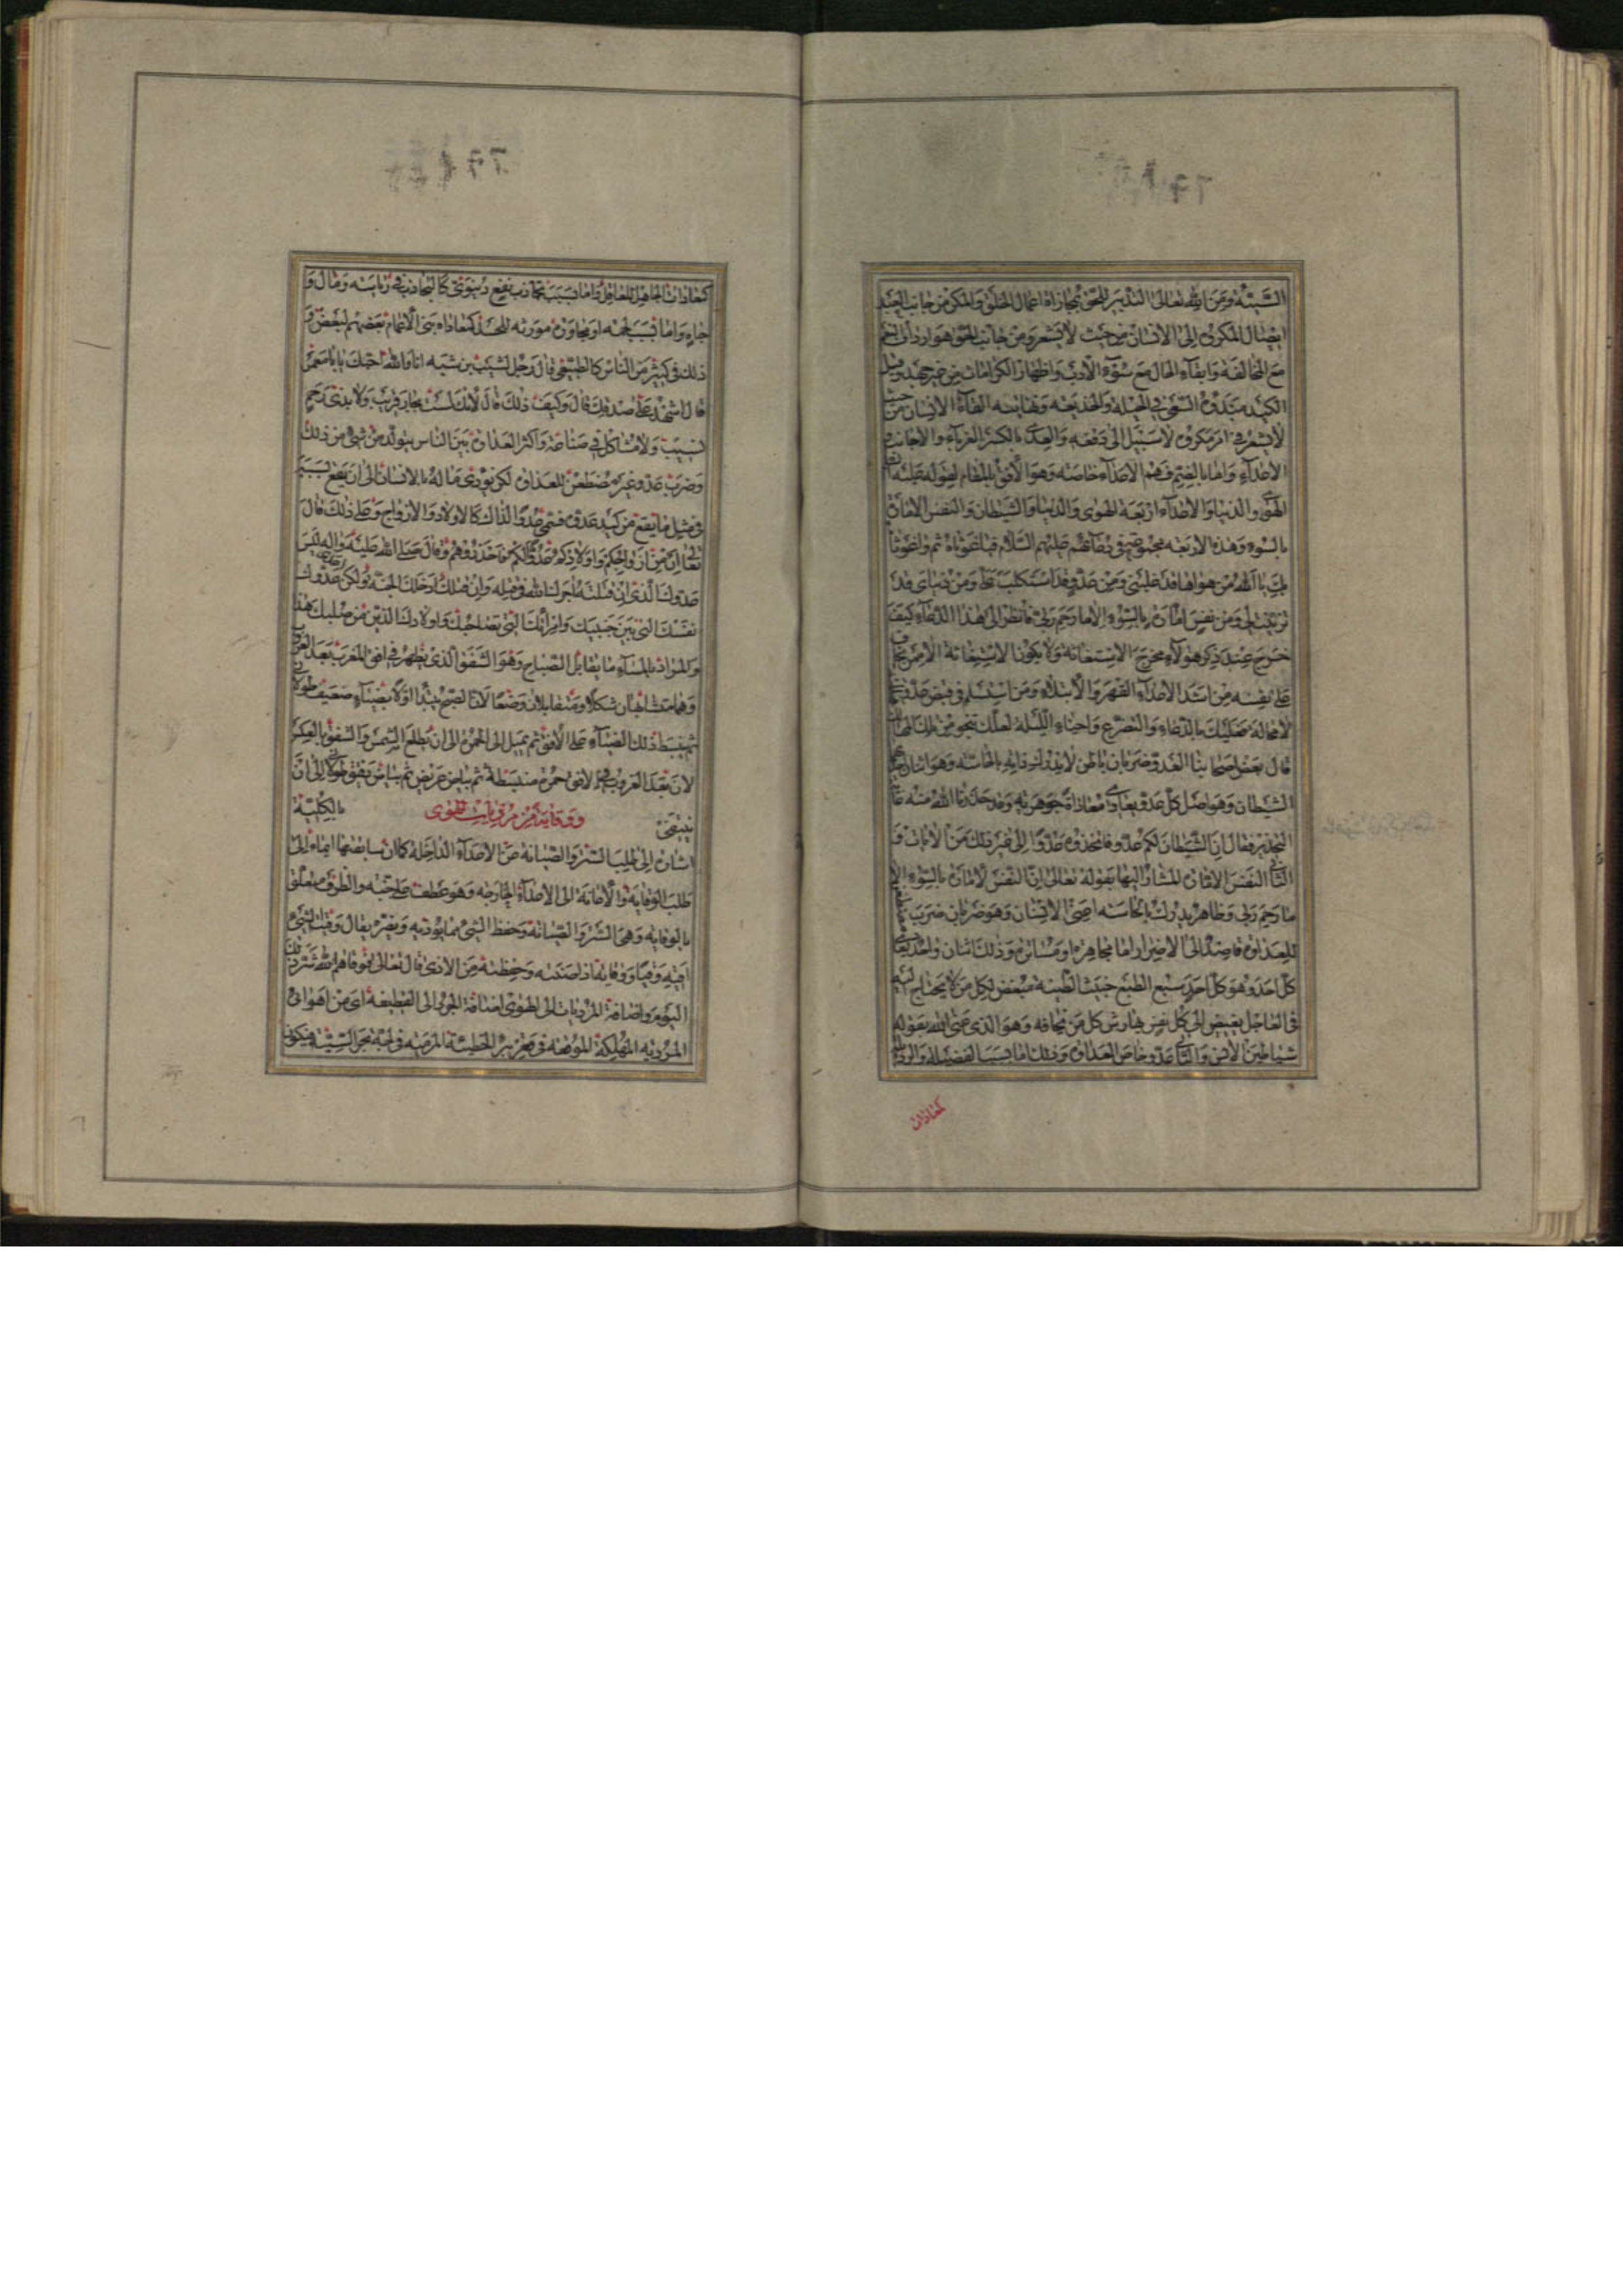 السيئة ومن الله تعالى التدبير للحق بمجازاة اعمال الخلق والمكر من جانب العبد
ايصال المكروه الى الانسان من حيث لا يشعر ومن جانب الحق هو ارداف النعم
مع المخالفة وابقاء الحال مع سوء الادب واظهار الكرامات من غير جهد وقيل
الكيد مبدؤه السعي في الحيلة والخديعة ونهايته القاء الانسان من حيث
لا يشعر في امر مكروه لا سبيل الى دفعه والعدى بالكسر الغرباء والاجانب و
الاعداء واما بالضم فهم الاعداء خاصة وهو الاوفق بالمقام لقوله عليه
الهوى والدنيا والاعداء اربعة الهوى والدنيا والشيطان والنفس الامارة
بالسوء وهذه الاربعة مجموعة في دعائهم عليهم السلام فياغوثاه ثم واغوثاه
بك يا الله من هوى قد غلبني ومن عدو قد استكلب علي ومن دنيا قد
تزينت لي ومن نفس امارة بالسوء الا ما رحم ربي فانظر الى هذا الدعاء كيف
خرج عند ذكر هؤلاء مخرج الاستغاثة ولا يكون الاستغاثة الا ممن يخاف
على نفسه من اشد الاعداء القهر والابتلاء ومن استسلم في قبض عدو
لا محالة فعليك بالدعاء والتضرع واحياء الليلة لعلك تنجو من تلك
قال بعض اصحابنا العدو ضربان باطن لا يدرك ذاته بالحاسة وهو اثنان
الشيطان وهو اصل كل عدو يعادى معاداة جوهرية وقد حذرنا الله منه غاية
التحذير فقال ان الشيطان لكم عدو فاتخذوه عدوا الى غير ذلك من الايات و
الثاني النفس الامارة المشار اليها بقوله تعالى ان النفس لامارة بالسوء الا
ما رحم ربي وظاهر يدرك بالحاسة اعني الانسان وهو ضربان ضرب
للعداوة قاصد الى الاضرار اما مجاهرة او مساترة وذلك اثنان واحد يعادى
كل احد وهو كل احد سبع الطبع خبيث الطينة مبغض لكل من لا يحتاج اليه
في العاجل بغيض الى كل نفس يهارش كل من يخافه وهو الذي عنى الله بقوله
شياطين الانس والثاني عدو خاص العداوة وذلك اما بسبب الفضيلة والرذيلة
كمعادات
كمعادات الجاهل للعاقل واما بسبب تجاذب نفع دنيوي كالتجاذب في رياسة ومال و
جاه واما بسبب لحمة او مجاورة مورثة للحسد كمعاداة بني الاعمام بعضهم لبعض و
ذلك في كثير من الناس كالطبيعي قال رجل لشبيب بن شيبه انا والله احبك يا ابا معمر
قال اشهد على صدقك قال وكيف ذلك قال لانك لست بجار قريب ولا بذي رحم
نسيب ولا مشاكل في صناعة واكثر العداوة بين الناس يتولد من شيء من ذلك
وضرب عدو غير مضطغن للعداوة لكن يؤدي ماله بالانسان الى ان يقع بسببه
في مثل ما يقع من كيد عدوه فسمي عدوا لذلك كالاولاد والازواج وعلى ذلك قال
تعالى ان من ازواجكم واولادكم عدوا لكم فاحذروهم وقال صلى الله عليه واله ليس
عدوك الذي ان قتلته اجرك الله في قتله وان قتلك ادخلك الجنة ولكن اعدى عدوك
نفسك التي بين جنبيك وامرأتك التي تضاجعك واولادك الذين من صلبك هذا
والمراد بالمساء ما يقابل الصباح وهو الشفق الذي يظهر في افق المغرب بعد الغروب
وهما متشابهان شكلا ومتقابلان وضعا لان الصبح يبدأ اولا بضياء ضعيف طولاني
ثم ينبسط ذلك الضياء على الافق ثم يميل الى الحمرة الى ان يطلع الشمس والشفق بالعكس
لان بعد الغروب في الافق حمرة منبسطة ثم بياض عريض ثم بياض دقيق طولاني الى ان
ينتفي ووقاية من مرديات الهوى بالكلية
اشارة الى طلب الستر والصيانة من الاعداء الداخلة كما ان سابقتها ايماء الى
طلب الوقاية والامانة الى الاعداء الخارجة وهو عطف على جنة والظرف متعلق
بالوقاية وهي الستر والصيانة وحفظ الشيء مما يؤذيه ويضره يقال وقيت الشيء
اقيه وقيا ووقاية اذا صنته وحفظته من الاذى قال تعالى فوقاهم الله شر ذلك
اليوم واضافة المرديات الى الهوى اضافة الجرد الى القطيفة اي من اهوائي
المردية المهلكة الموقعة في